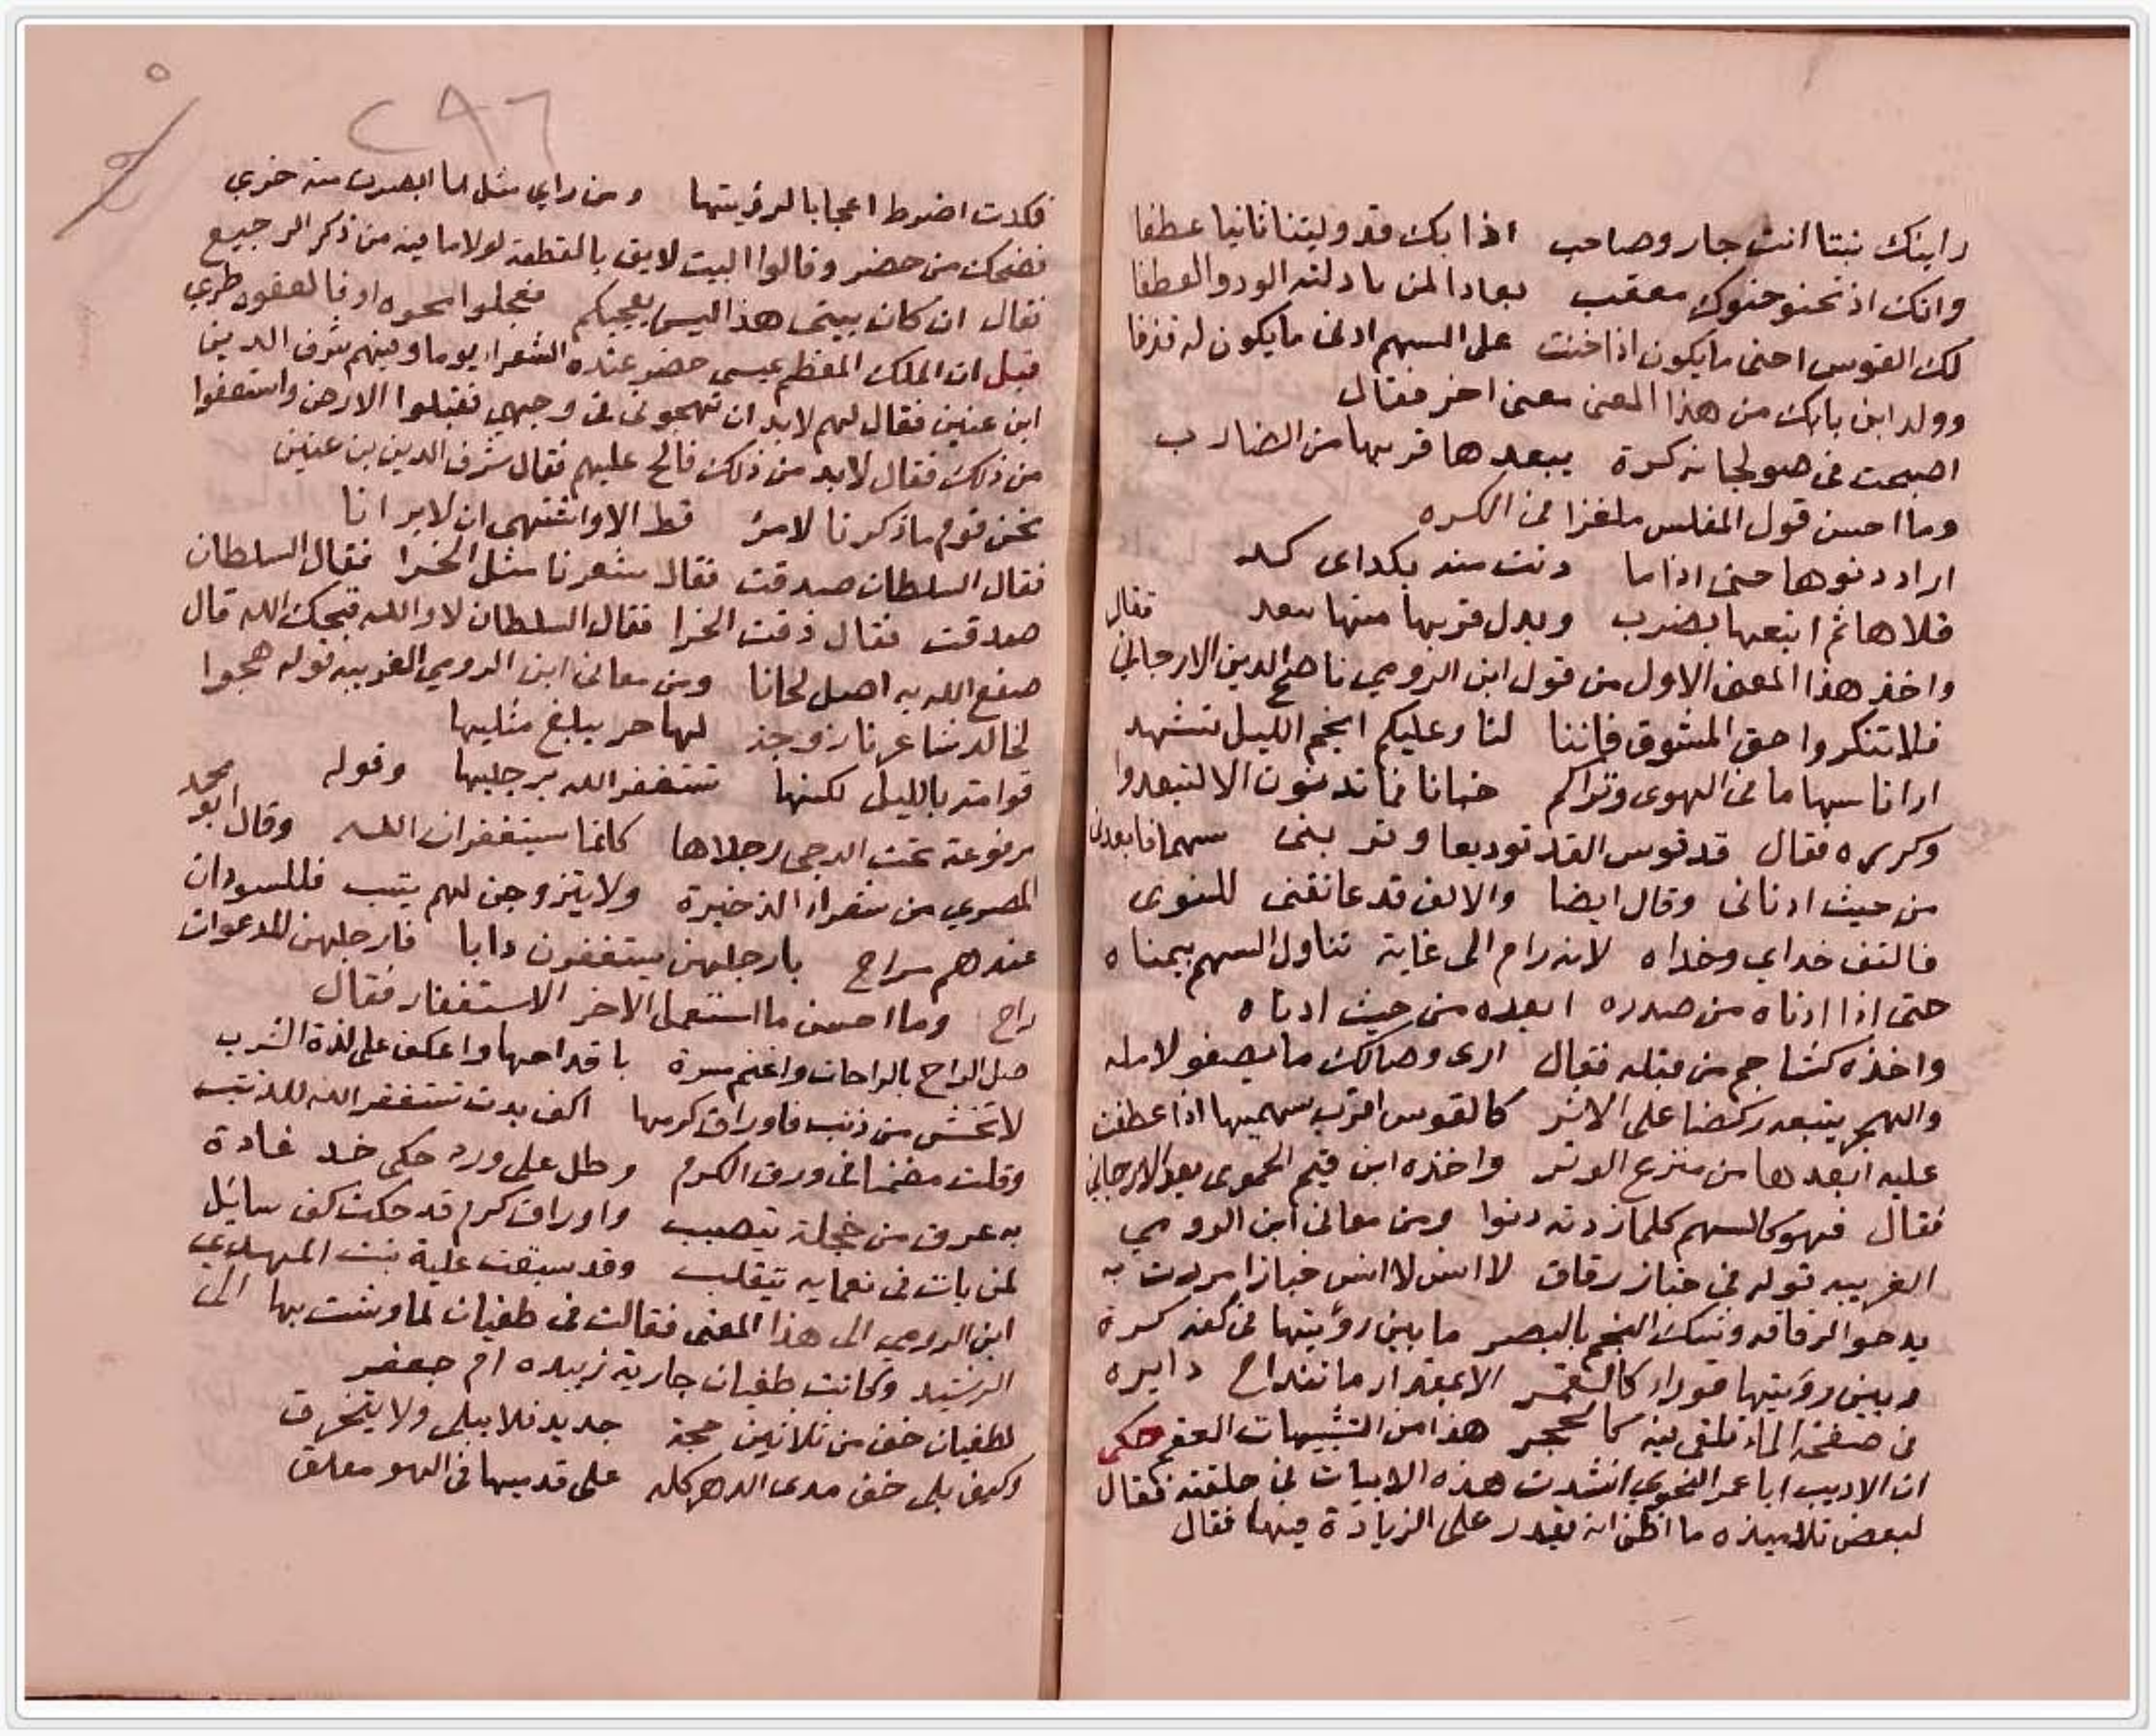 رايتك بيتا انت جار وصاحب اذا بك قد وليتنا ثانيا عطفا
وانك اذ تحنو حنوك معقب بعادا لمن بادلته الود والعطفا
لك القوس احنى ما يكون اذا حنت على السهم ادنى ما يكون له قذفا
وولد ابن بابك من هذا المعنى معنى اخر فقال
اصبحت فى صولجانه كرة يبعدها قربها من الضارب
وما احسن قول المفلس ملغزا فى الكره
اراد دنوها حتى اذا ما دنت منه بكداى كد
قلاها ثم اتبعها بضرب وبدل قربها منها ببعد فقال
واخذ هذا المعنى الاول من قول ابن الرومي ناصح الدين الارجاني
فلا تنكروا حق المشوق فاننا لنا وعليكم انجم الليل تشهد
ارانا سهاما فى الهوى ونراكم حنايا فما تدنون الا لتبعدوا
وكرره فقال قد قوس القد توديعا وقربنى سهما فابعدنى
من حيث ادنانى وقال ايضا والالف قد عانقنى للنوى
فالتف خداي وخداه لانه رام الى غاية تناول السهم بيمناه
حتى اذا ادناه من صدره ابعده من حيث ادناه
واخذه كشاجم من قبله فقال ارى وصالك ما يصفو لامله
والهجر يتبعه ركضا على الاثر كالقوس اقرب سهميها اذا عطفت
عليه ابعدها من منزع الوتر واخذه ابن قيم الحموى بعد الارجاني
فقال فهو كالسهم كلما زدته دنوا ومن معانى ابن الرومي
الغريبه قوله فى خباز رقاق لا انس لا انس خبازا مررت به
يدحو الرقاقه وشك اللمح بالبصر ما بين رؤيتها فى كفه كرة
وبين رؤيتها قوراء كالقمر الا بمقدار ما تنداح دايره
فى صفحة الماء تلقى فيه كالحجر هذا من التشبيهات العقم حكى
ان الاديب ابا عمر النحوي انشدت هذه الابيات فى حلقته فقال
لبعض تلاميذه ما اظن انه يقدر على الزيادة فيها فقال
٢٩٦
فكدت اضرط اعجابا لرؤيتها ومن راي مثل ما ابصرت منه خري
فضحك من حضر وقالوا البيت لايق بالقطعة لولا ما فيه من ذكر الرجيع
فقال ان كان بيتى هذا ليس يعجبكم فعجلوا محوه او فالعقوه طري
قيل ان الملك المعظم عيسى حضر عنده الشعراء يوما وفيهم شرف الدين
ابن عنين فقال لهم لابد ان تهجونى فى وجهي فقبلوا الارض واستعفوا
من ذلك فقال لابد من ذلك فالح عليهم فقال شرف الدين بن عنين
نحن قوم ما ذكرنا لامرئ قط الا واشتهى ان لا يرانا
فقال السلطان صدقت فقال شعرنا مثل الخرا فقال السلطان
صدقت فقال ذقت الخرا فقال السلطان لا والله قبحك الله قال
صفع الله به اصل لحانا ومن معانى ابن الرومي الغريبه قوله هجوا
لخالد شاعرنا زوجة لها حر يبلغ مثليها
قوامة بالليل لكنها تستغفر الله برجليها وقوله
مرفوعة تحت الدجى رجلاها كانما يستغفران الله وقال ابو محمد
المصري من شعراء الذخيرة ولا يتزوجن لهم بنت فللسودان
عندهم سراح بارجلهن يستغفرون دابا فارجلهن للدعوات
راح وما احسن ما استعمل الاخر الاستغفار فقال
صل الراح بالراحات واغنم مسرة باقداحها واعكف على لذة الشرب
لا تخش من ذنب فاوراق كرمها اكف بدت تستغفر الله للذنب
وقلت مضمنا فى ورق الكرم وطل على ورد حكى خد غادة
به عرق من خجلة تيصبب واوراق كرم قد حكت كف سايل
لمن بات فى نعمايه يتقلب وقد سبقت علية بنت المهدي
ابن الرومي الى هذا المعنى فقالت فى طغيان لما وشت بها الى
الرشيد وكانت طغيان جارية زبيده ام جعفر
لطغيان خف من ثلاثين حجة جديد فلا يبلى ولا يتخرق
وكيف بلى خف مدى الدهر كله على قدميها فى الهو معلق